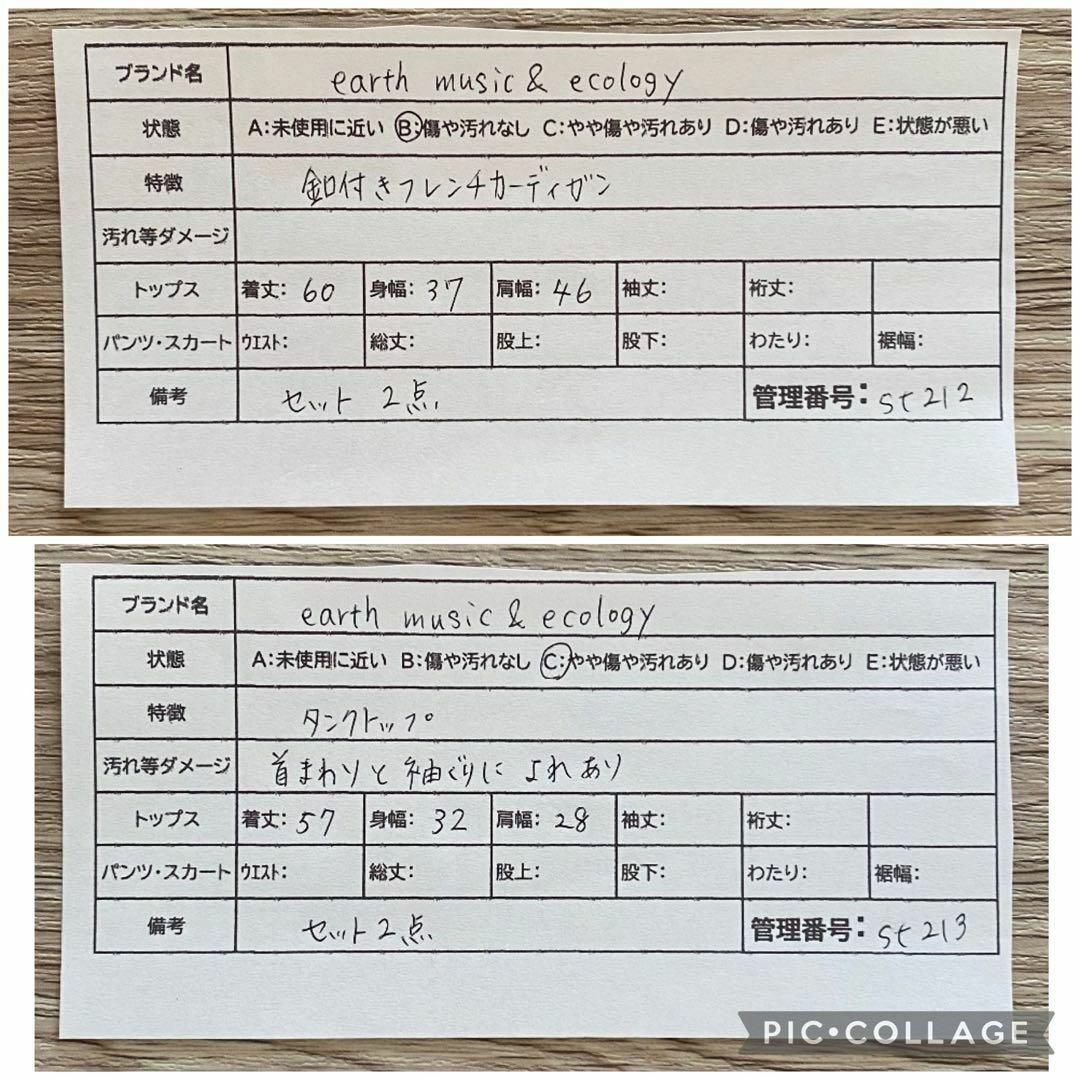 ブランド名 earth music & ecology
状態 A:未使用に近い B:傷や汚れなし C:やや傷や汚れあり D:傷や汚れあり E:状態が悪い
特徴 釦付きフレンチカーディガン
汚れ等ダメージ
トップス 着丈: 60 身幅: 37 肩幅: 46 袖丈: 裄丈:
パンツ・スカート ウエスト: 総丈: 股上: 股下: わたり: 裾幅:
備考 セット 2点 管理番号: st212
ブランド名 earth music & ecology
状態 A:未使用に近い B:傷や汚れなし C:やや傷や汚れあり D:傷や汚れあり E:状態が悪い
特徴 タンクトップ
汚れ等ダメージ 首まわりと袖ぐりによれあり
トップス 着丈: 57 身幅: 32 肩幅: 28 袖丈: 裄丈:
パンツ・スカート ウエスト: 総丈: 股上: 股下: わたり: 裾幅:
備考 セット2点 管理番号: st213
PIC•COLLAGE